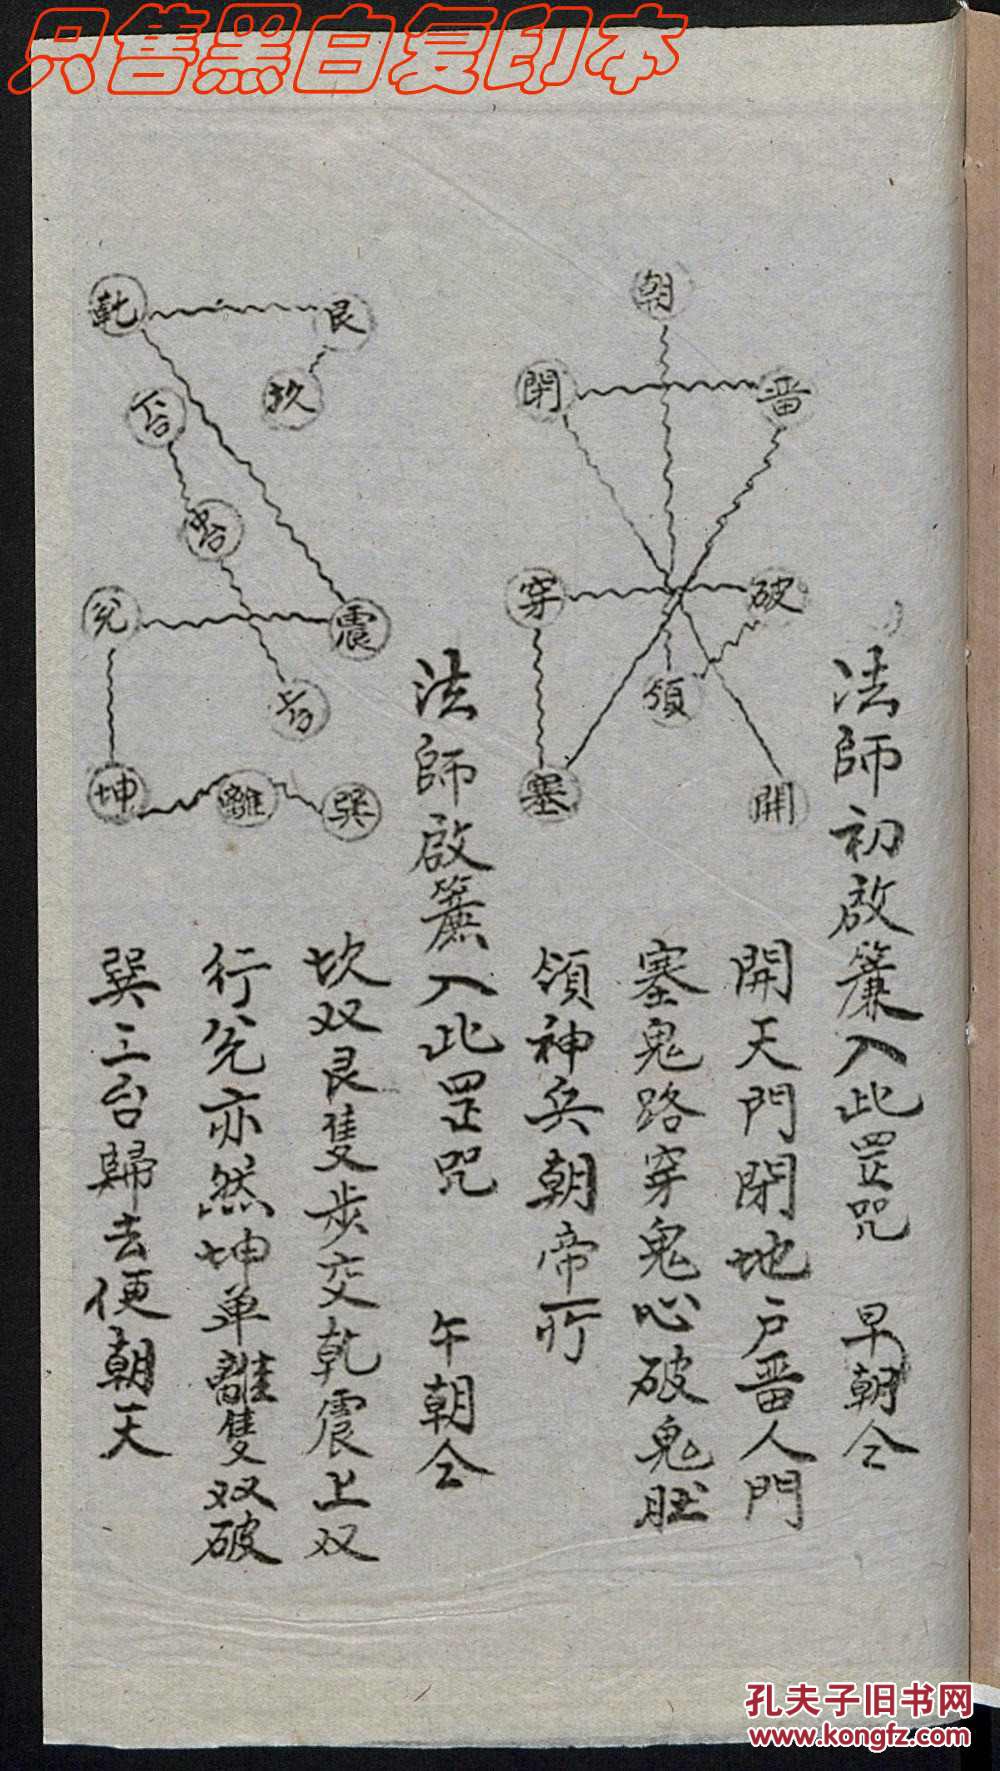 只售黑白复印本
朝
閉
畨
穿
破
領
塞
開
法師初啟簾入此罡咒 早朝仝
開天門閉地户畨人門
塞鬼路穿鬼心破鬼肚
領神兵朝帝所
乾
艮
坎
下台
中台
兊
震
上台
坤
離
巽
法師啟簾入此罡咒 午朝仝
坎双艮隻步交乾震上双
行兊亦然坤单離隻双破
巽三台歸去便朝天
孔夫子旧书网
www.kongfz.com